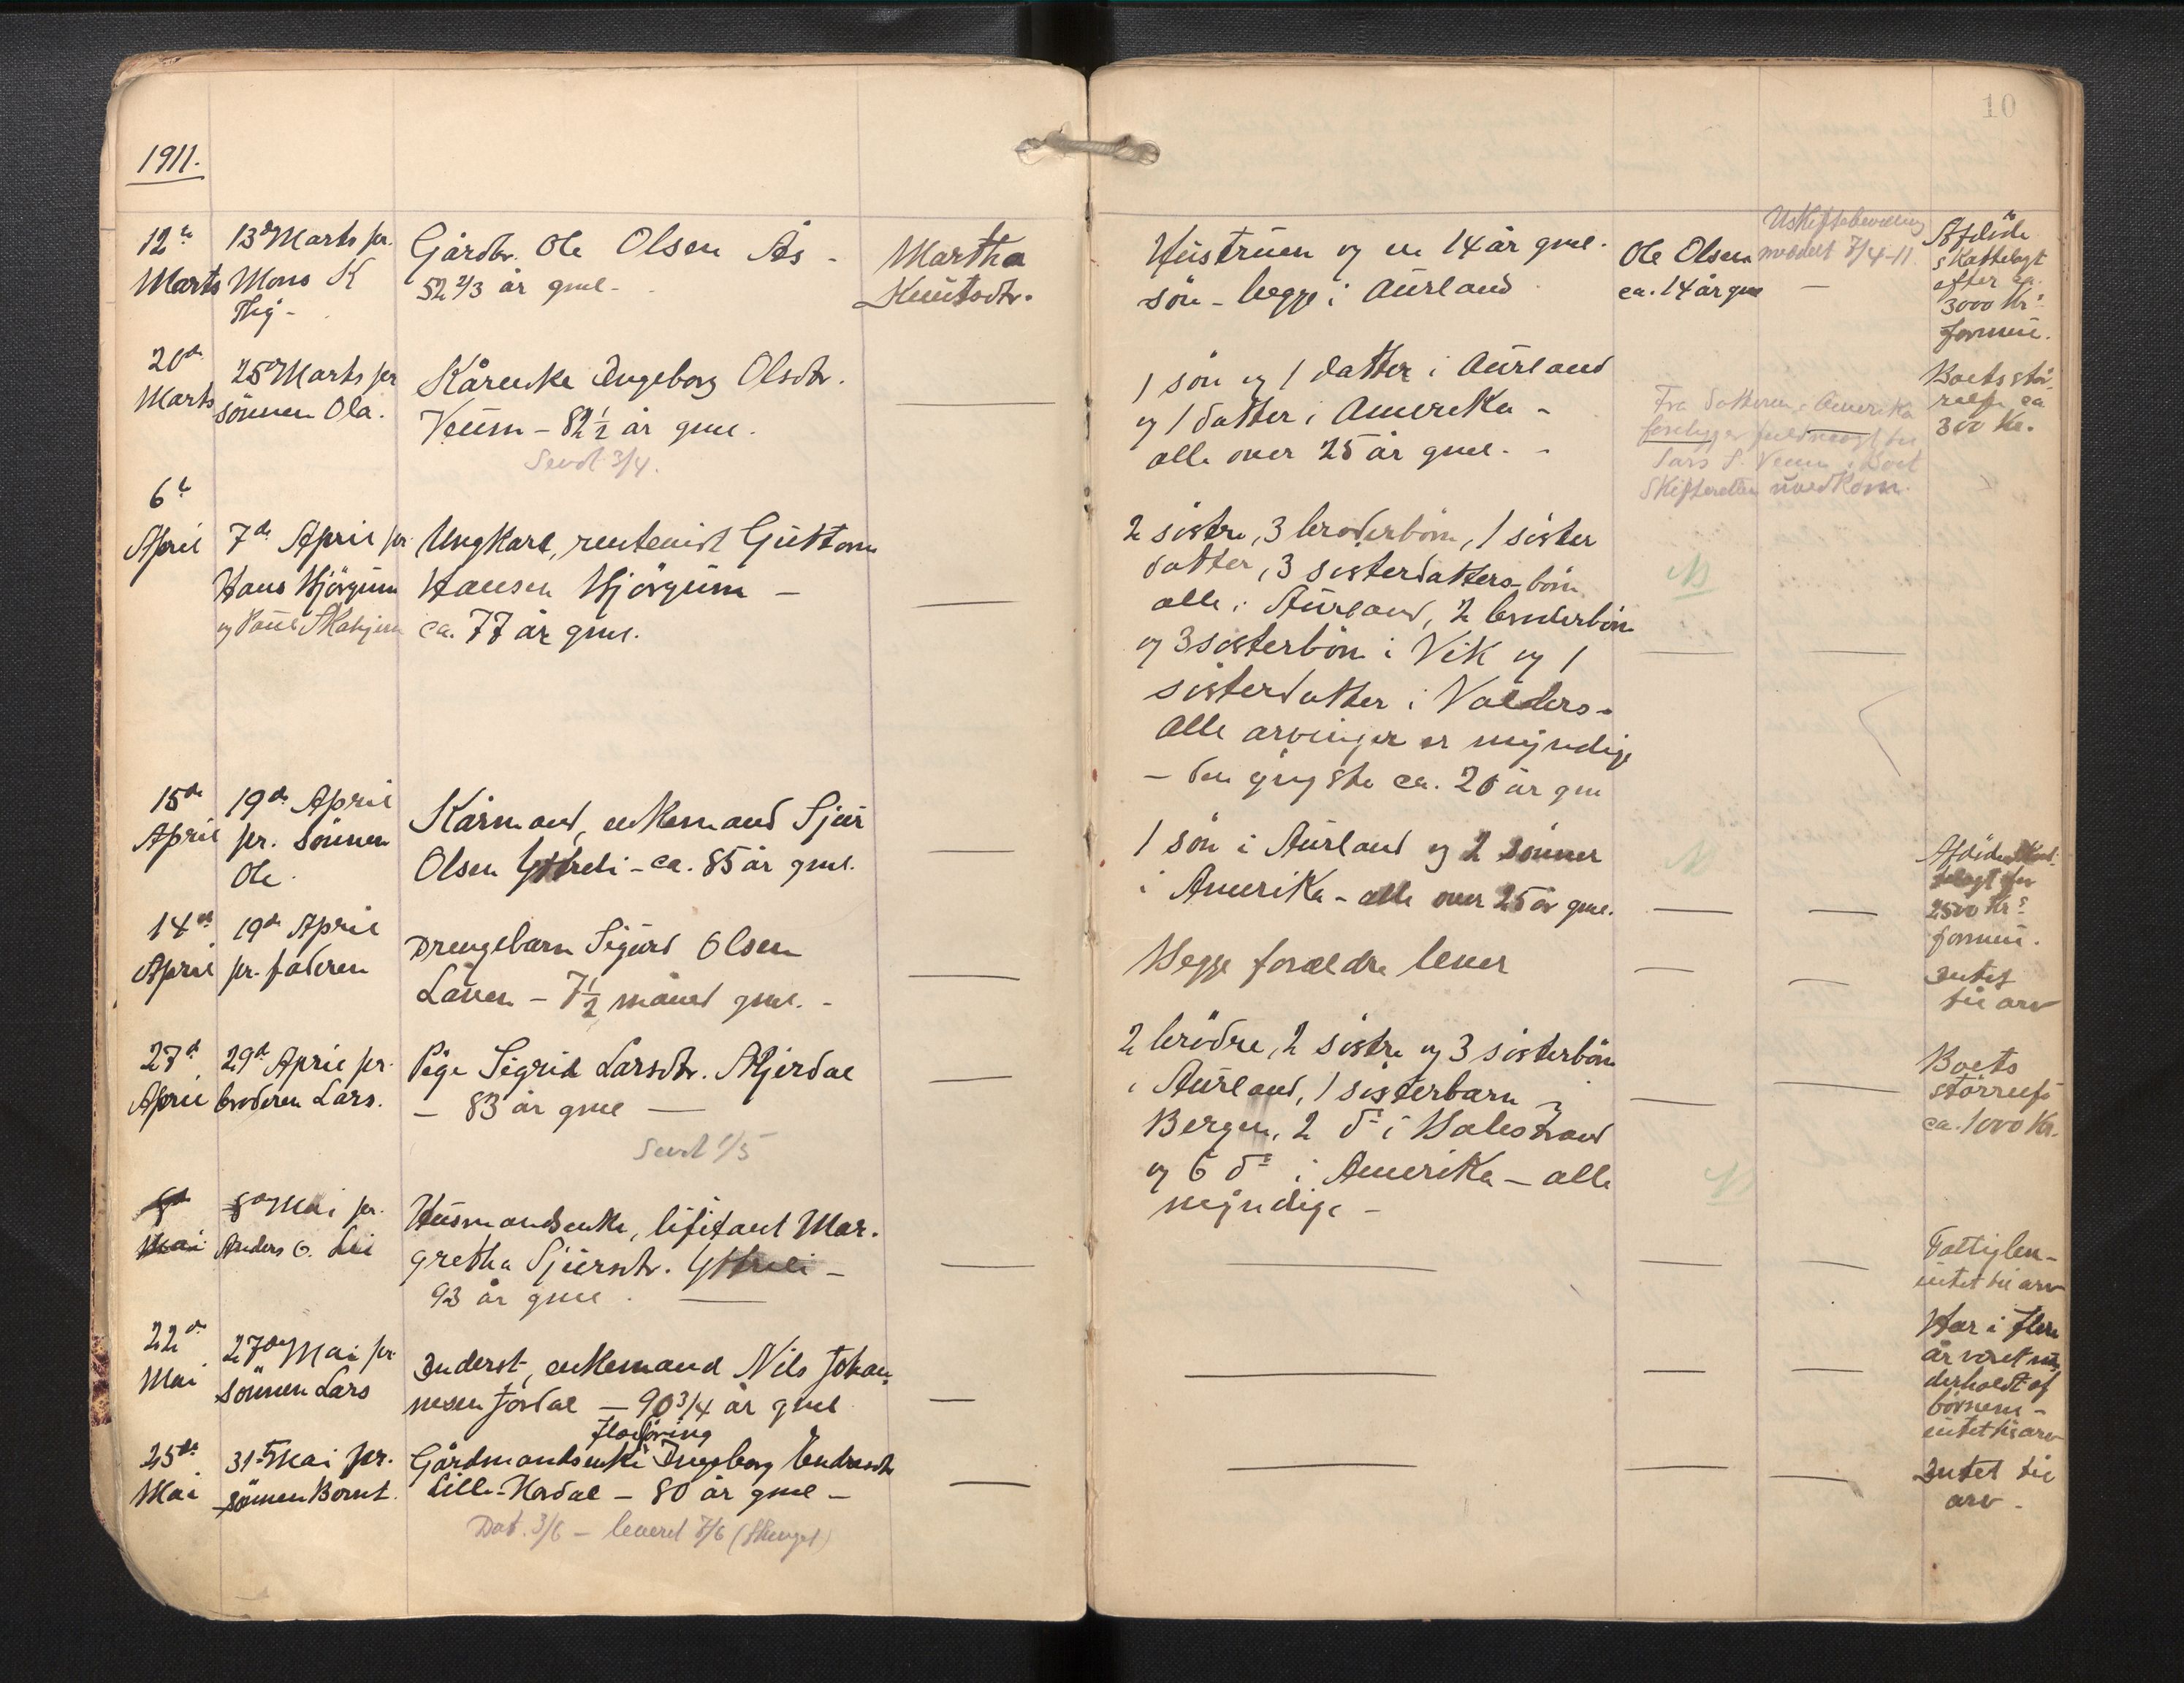 1911.
10
12te
Marts
13de Marts pr.
Mons K
Gårdbr. Ole Olsen Ås -
52 2/3 år gml. -
Martha
Knutsdtr.
Hustruen og en 14 år gml.
sön - begge i Aurland
Ole Olsen
ca. 14 år gml
Uskiftebevilling
meddelt 7/4-11.
Afdöde
skattelagt
efter ca.
3000 Kr.s
formue.
20de
Marts
25de Marts pr
sönnen Ola.
Kårenke Ingeborg Olsdtr.
Veum - 82 1/2 år gml.
Sendt 3/4.
1 sön og 1 datter i Aurland
og 1 datter i Amerika -
alle over 25 år gml. -
Fra datteren i Amerika
foreligger fuldmagt til
Lars S. Veum. Boet
skifteretten uvedkom.
Boets stör-
relse ca
300 Kr.
6te
April
7de April pr
Hans Hjörgum
og
Ungkarl, rentenist Guttorm
Hansen Hjörgum -
ca. 77 år gml.
2 sistre, 3 broderbörn, 1 sister
datter, 3 sisterdatters-börn
alle i Aurland, 2 broderbörn
og 3 sisterbörn i Vik og 1
sisterdatter i Valders.
Alle arvinger er myndige
- den yngste ca. 26 år gml
N
15de
April
19de April
pr. sönnen
Ole
Kårmand, enkemand Sjur
Olsen Ytreli - ca. 85 år gml.
1 sön i Aurland og 2 sönner
i Amerika - alle over 25 år gml.
N
2500 Kr.s
formue.
14de
April
19de April
pr. faderen
Drengebarn Sigurd Olsen
Låven - 7 1/2 måned gml. -
Begge forældre lever
Intet
til arv
27de
April
29de April pr.
broderen Lars.
Pige Sigrid Larsdtr. Skjerdal
- 83 år gml -
Sendt 1/5
2 brödre, 2 sistre og 3 sisterbörn
i Aurland, 1 sisterbarn i
Bergen, 2 do i Balestrand
og 6 do i Amerika - alle
myndige -
N
Boets
störrelse
ca. 1000 Kr.
Mai
8de Mai pr.
Anders O. Lei
Husmandsenke, lifitant Mar-
gretha Sjursdtr. Ytreli -
93 år gml.
Fattiglem -
intet til arv
22de
Mai
27de Mai pr
sönnen Lars
Inderst, enkemand Nils Johan-
nesen Jordal - 90 3/4 år gml
Har i flere
år været un-
derholdt af
börnene -
intet til arv
25de
Mai
31te Mai pr.
sönnen Bernt.
Flåföring
Gårdmandsenke Ingeborg Endresdtr
Lill-Herdal - 80 år gml -
Dat. 3/6 - leveret 7/6
Intet til
arv -